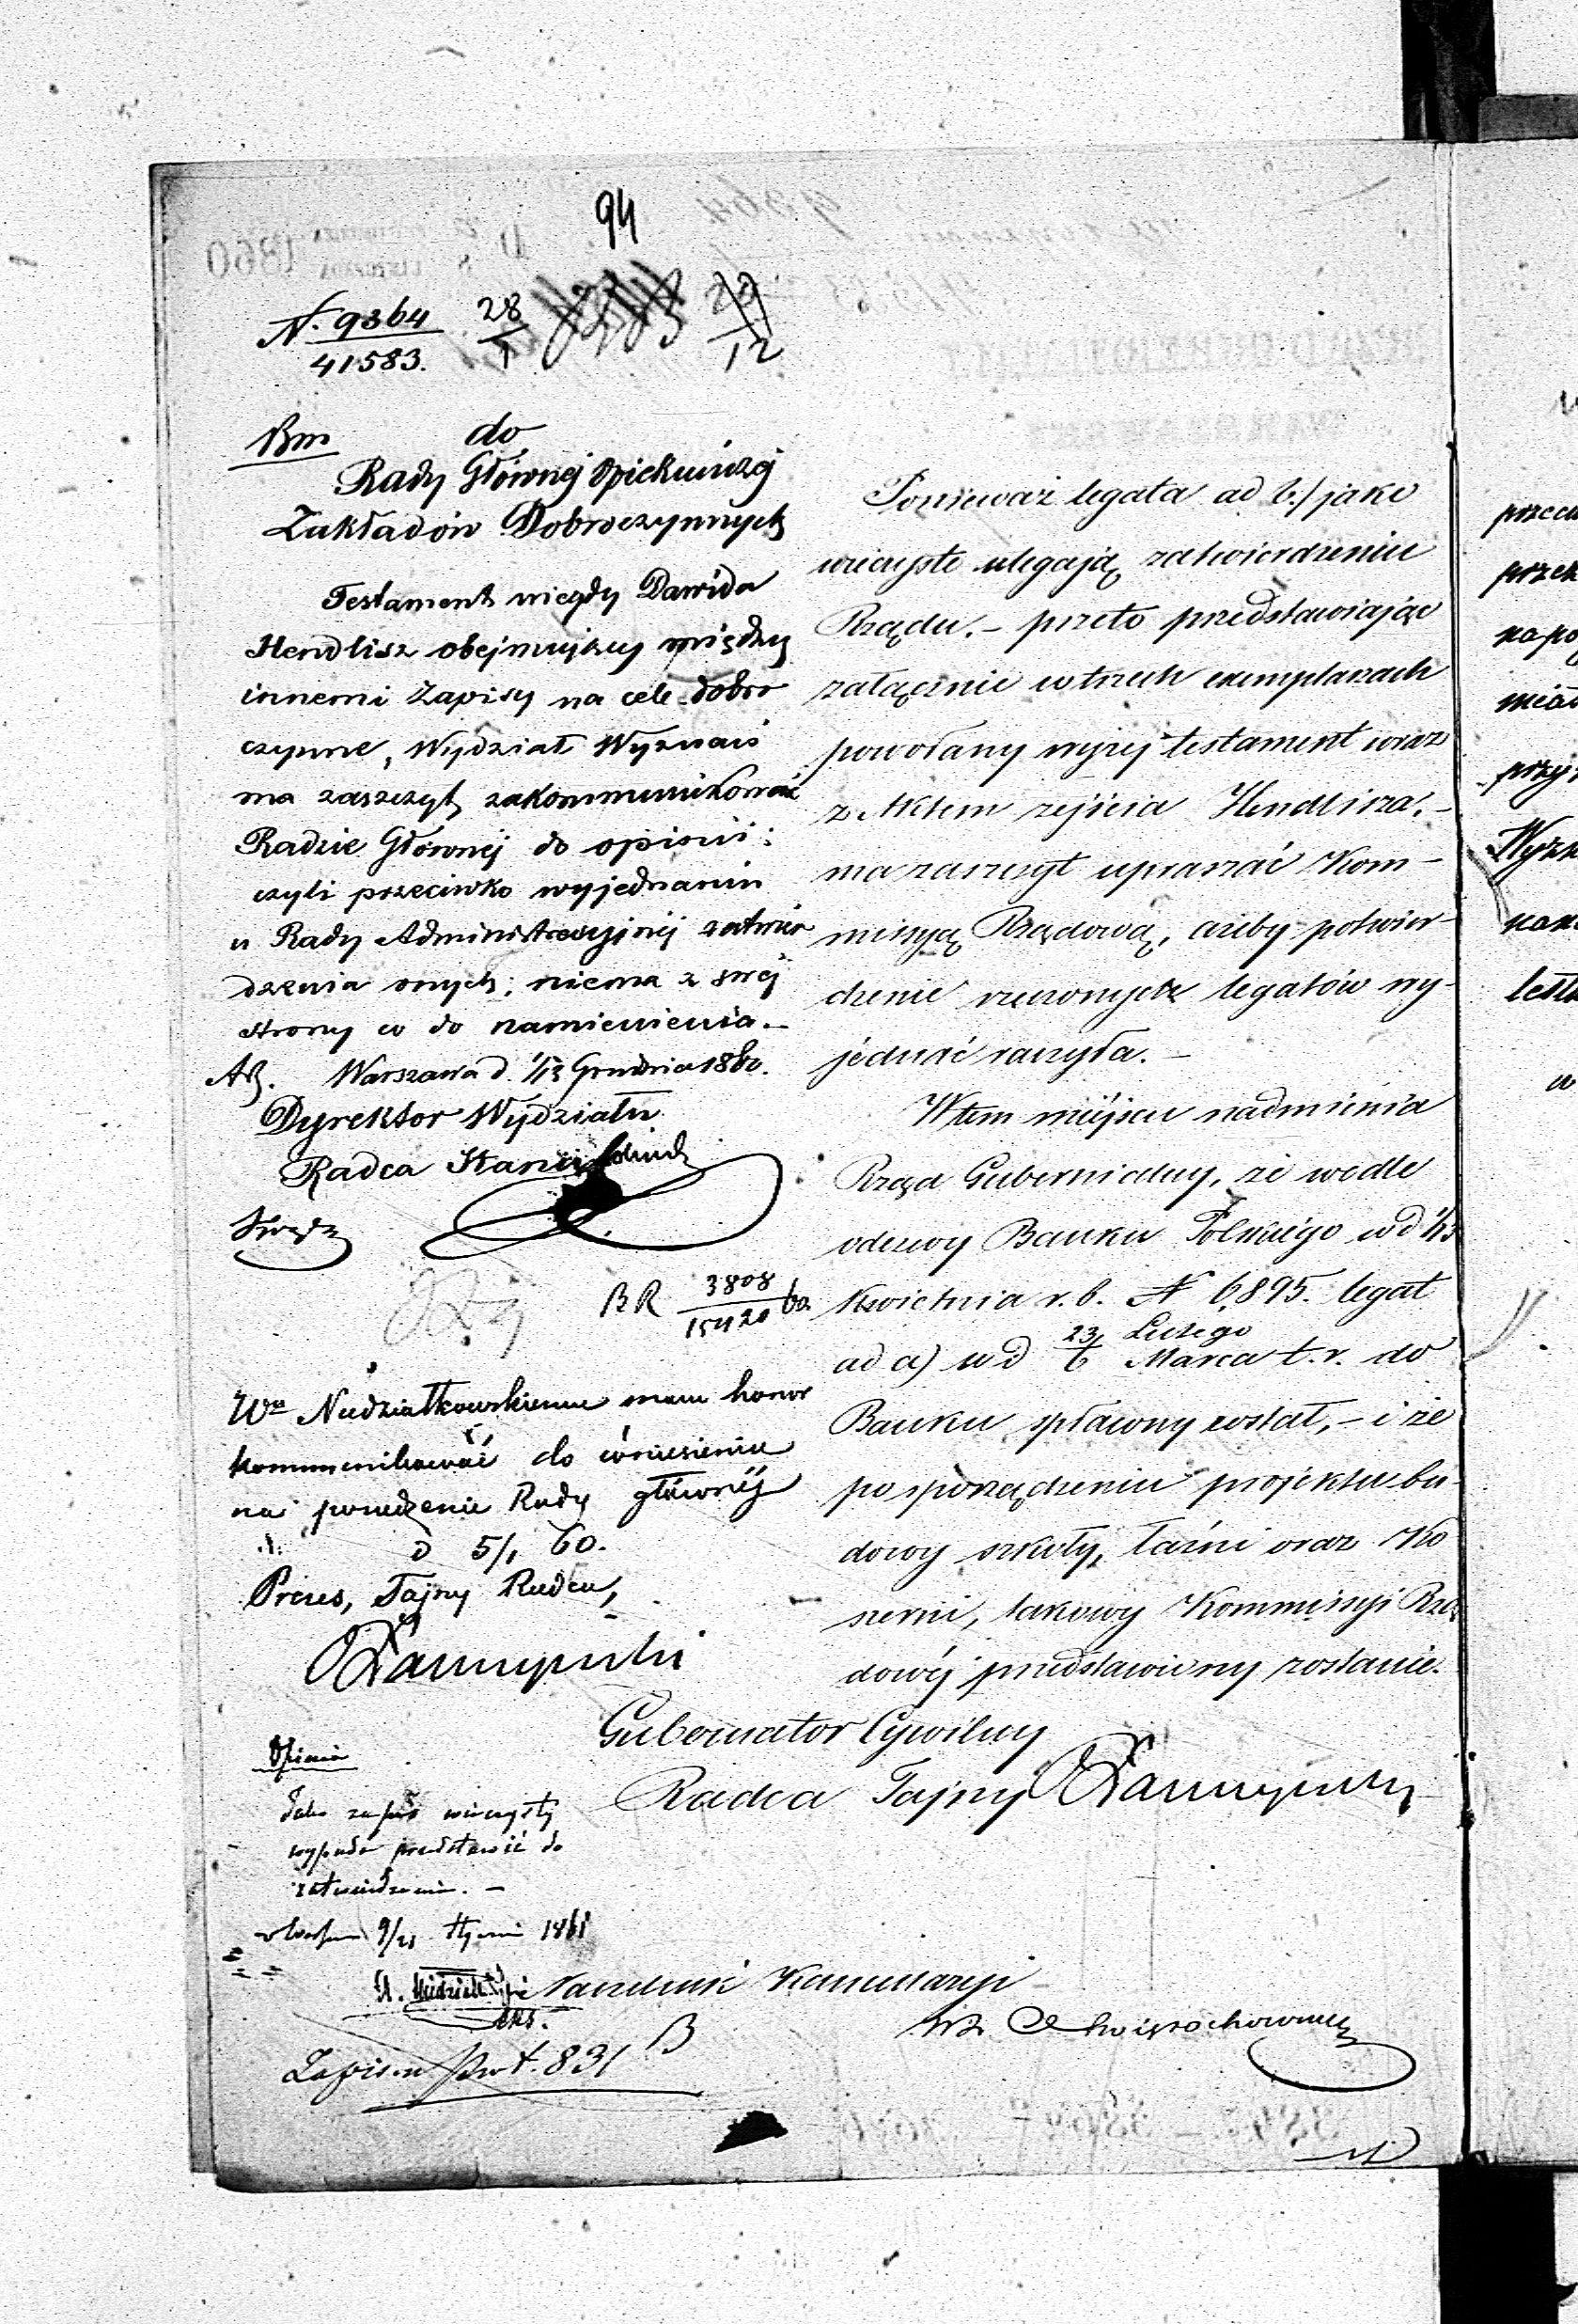 94
N. 9364
41583.
28
1
12
Bm do
Rady Głównej Opiekuńczej
Zakładów Dobroczynnych
Testament niegdy Dawida
Hendlisz obejmujący między
innemi Zapisy na cele dobro
czynne, Wydział Wyznań
ma zaszczyt zakommunikować
Radzie Głównej do opinii:
czyli przeciwko wyjednaniu
u Rady Administracyjnej zatwier
dzenia onych; niema z swej
strony co do namienienia.—
Warszawa d. 1/13 Grudnia 1860.
Dyrektor Wydziału
Radca Stanu
BR 3808
15420 60
Wu Niedziałkowskiemu mam honor
kommunikować do wniesienia
na posiedzenie Rady głównej
d 5/1 60.
Prezes, Tajny Radca,
Opinia
Jako zapis wieczysty
wypada przedstawić do
zatwierdzenia. —
9/21 1861
Zapis. Prot. 831 B
Ponieważ legata ad b./ jako
wieczyste ulegają zatwierdzeniu
Rządu. – przeto przedstawiając
załącznie w trzech exemplarzach
powołany wyżej testament wraz
z Aktem zejścia Hendlisza. –
ma zaszczyt upraszać Kom–
missyą Rządową, ażeby potwier–
dzenie rzeczonych legatów wy–
jednać raczyła. –
W tem miejscu nadmienia
Rząd Gubernialny, że wedle
odezwy Banku Polskiego z d 1/13
Kwietnia r. b. N 6,895. legat
ad a) w d 23 Lutego
6 Marca t. r. do
Banku spławiony został, – i że
po sporządzeniu projektu bu–
dowy szkoły, łaźni oraz Ko
szerni, takowy Kommissyi Rzą
dowéj przedstawiony zostanie.
Gubernator Cywilny
Radca Tajny
Naczelnik Kancellaryi